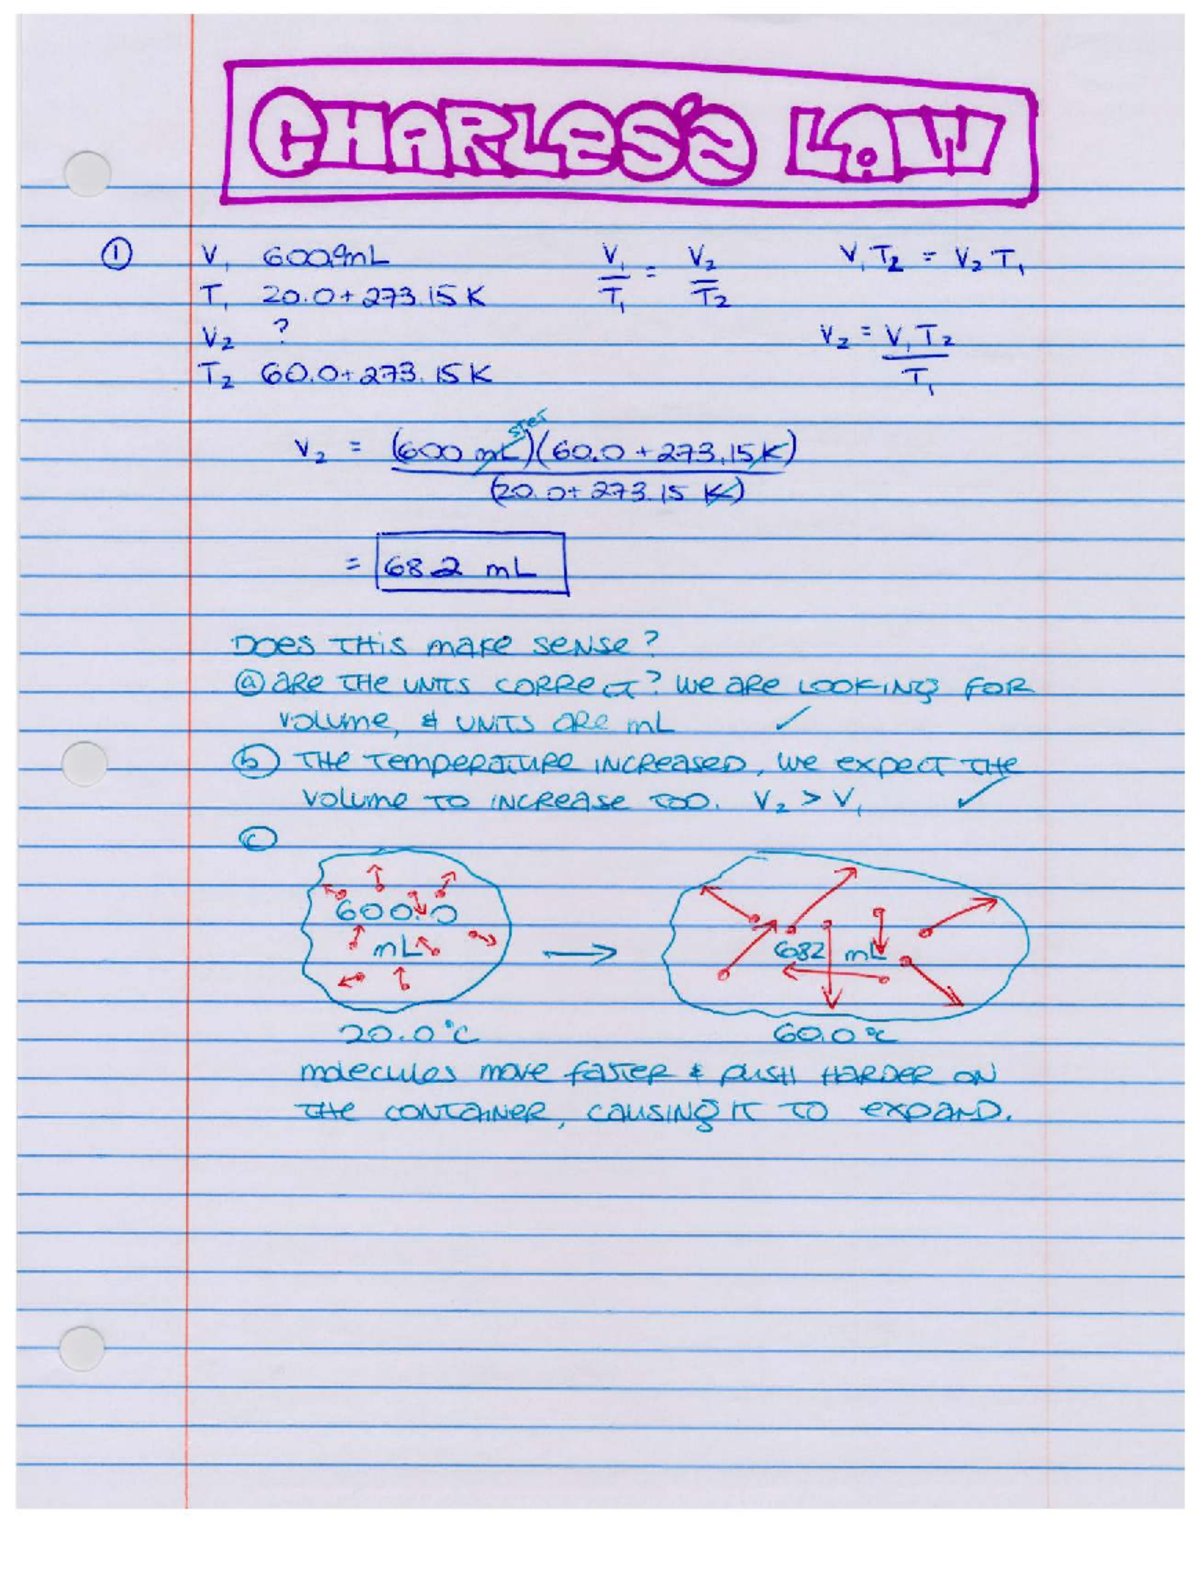 CHARLES'S LAW
① V₁ 600.0mL V₁/T₁ = V₂/T₂ V₁T₂ = V₂T₁
T₁ 20.0+273.15K
V₂ ? V₂ = V₁T₂/T₁
T₂ 60.0+273.15K
V₂ = (600 mL)(60.0+273.15K)/(20.0+273.15 K)
= 682 mL
DOES THIS MAKE SENSE?
ⓐ ARE THE UNITS CORRECT? WE ARE LOOKING FOR
VOLUME, & UNITS ARE mL ✓
ⓑ THE TEMPERATURE INCREASED, WE EXPECT THE
VOLUME TO INCREASE TOO. V₂ > V₁ ✓
ⓒ
600.0
mL
→
682 mL
20.0°C 60.0°C
MOLECULES MOVE FASTER & PUSH HARDER ON
THE CONTAINER, CAUSING IT TO EXPAND.